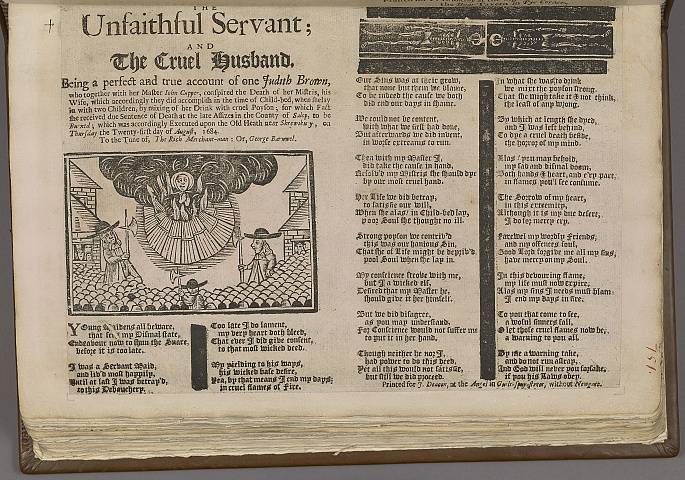 THE
Unfaithful Servant;
AND
The Cruel Husband.
Being a perfect and true account of one Judith Brown,
who together with her Master John Cupper, conspired the Death of her Mistris, his
Wife, which accordingly they did accomplish in the time of Child-bed, when she lay
in with two Children, by mixing of her Drink with cruel Poyson; for which Fact
she received due Sentence of Death at the late Assizes in the County of Salop, to be
Burned; which was accordingly Executed upon the Old Heath near Shrewsbury, on
Thursday the Twenty-first day of August, 1684.
To the Tune of, The Rich Merchant-man: Or, George Barnwel.
Young Maidens all beware,
that see my Dismal state,
Endeavour now to shun the Snare,
before it is too late.
I was a Servant Maid,
and liv'd most happily,
Until at last I was betray'd,
to this Debauchery.
Too late I do lament,
my very heart doth bleed,
That ever I did give consent,
to that most wicked deed.
My yielding to his ways,
his wicked base desire,
Yea, by that means I end my days;
in cruel flames of Fire.
Our Sins was at their grow,
that none but them we blame,
To be induced the cause we both
did end our days in shame.
We could not be content,
with what we first had done,
But afterwards we did invent,
in worse extreams to run.
Then with my Master I,
did take the cause in hand,
Resolv'd my Mistris she should dye
by our most cruel hand.
Her Life we did betray,
to satisfie our will,
When she alas! in Child-bed lay,
poor Soul she thought no ill.
Strong poyson we contriv'd
this was our hainous Sin,
That she of Life might be depriv'd
poor Soul when she lay in.
My conscience strove with me,
but I a wicked elf,
Desired that my Master he,
should give it her himself.
But we did disagree,
as you may understand,
For Conscience would not suffer me
to put it in her hand.
Though neither he nor I,
had power to do this deed,
Yet all this would not satisfie,
but still we did proceed.
In what she was to drink
we mixt the poyson strong,
That she might take it & not think,
the least of any wrong.
By which at length she dyed,
and I was left behind,
To dye a cruel death beside,
the horror of my mind.
Alas! you may behold,
my sad and dismal doom,
Both hands & heart, and e'ry part,
in flames you'l see consume.
The Sorrow of my heart,
in this extremity,
Although it is my due desert,
I do for mercy cry.
Farewel my worldly Friends,
and my offences foul,
Good Lord forgive me all my sins,
have mercy on my Soul.
In this devouring flame,
my life must now expire,
Alas my sins I needs must blame
I end my days in fire.
To you that come to see,
a woful sinners fall,
O let those cruel flames now be,
a warning to you all.
By me a warning take,
and do not run astray,
And God will never you forsake,
if you his Laws obey.
Printed for J. Deacon, at the Angel in Guilt-spur-street, without Newgate.